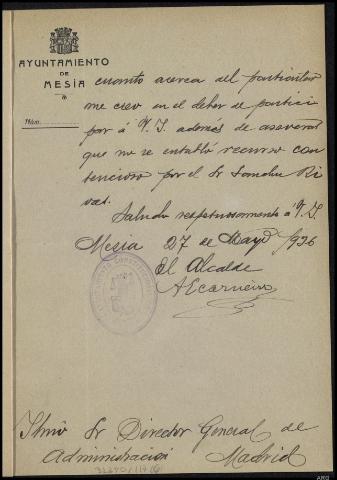 AYUNTAMIENTO
DE
MESÍA
Núm.
cuanto acerca del particular
me creo en el deber de partici
par á V. I. además de aseverar
que no se entabló recurso con
tencioso por el Sr Sanchez Ri
vas.
Saludo respetuosamente á V. I.
Mesia 27 de Mayo 1936
El Alcalde
A Carneiro
Iltmo Sr Director General de
Administración Madrid